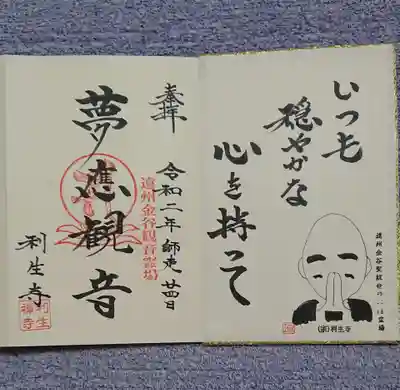 いつも
穏やかな
心を持って
遠州金谷
(宗)利生寺
奉拝
令和二年師走廿四日
遠州金谷観音霊場
夢應観音
利生寺
利生禅寺